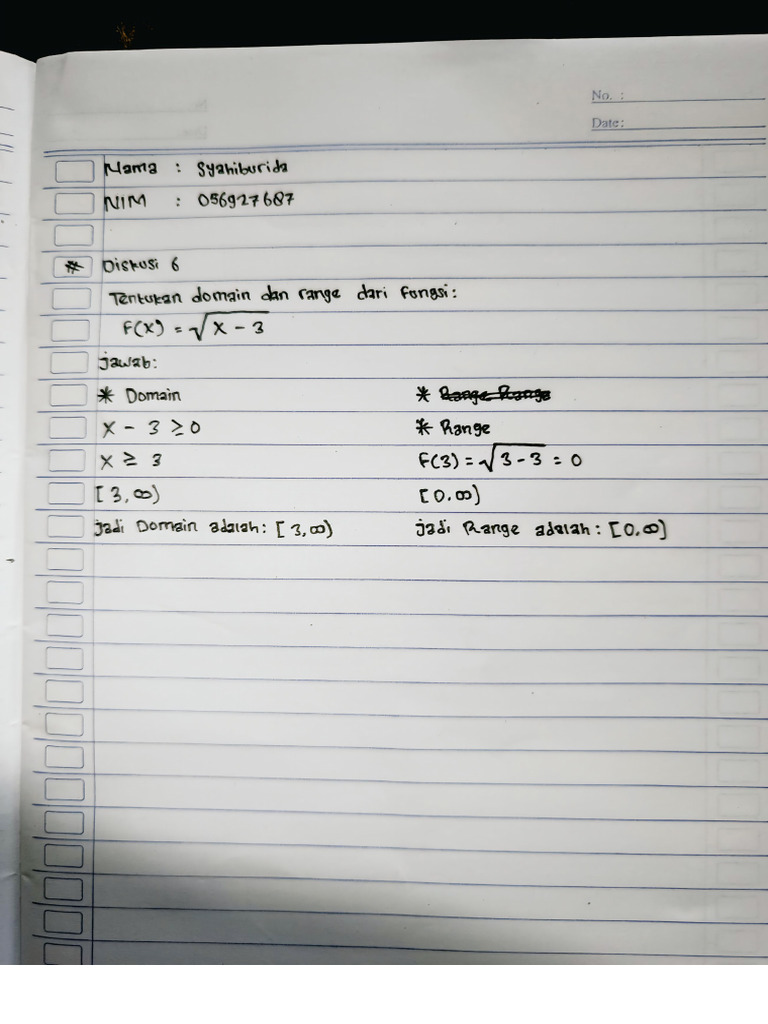 No. :
Date:
Nama : Syahiburida
NIM : 056927687
* Diskusi 6
Tentukan domain dan range dari fungsi:
F(x) = √x - 3
jawab:
* Domain
x - 3 ≥ 0
x ≥ 3
[3,∞)
jadi Domain adalah: [3,∞)
* Range Range
* Range
F(3) = √3-3 = 0
[0.∞]
jadi Range adalah: [0,∞]